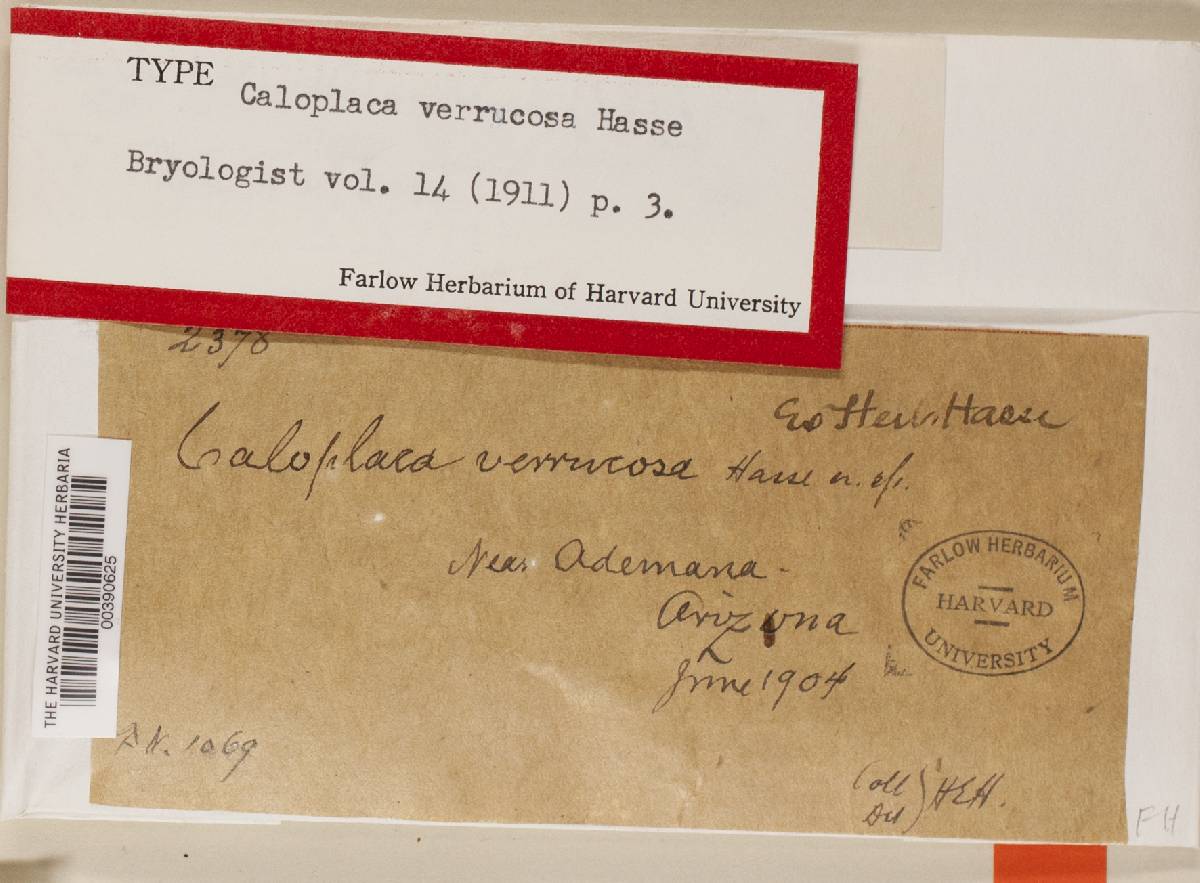 TYPE
Caloplaca verrucosa Hasse
Bryologist vol. 14 (1911) p. 3.
Farlow Herbarium of Harvard University
2378
Ex Herb. Hasse
Caloplaca verrucosa Hasse n. sp.
Near Ademana -
Arizona
June 1904
FARLOW HERBARIUM
HARVARD
UNIVERSITY
THE HARVARD UNIVERSITY HERBARIA
00390625
N. 1069
Coll
Det
HEH.
FH